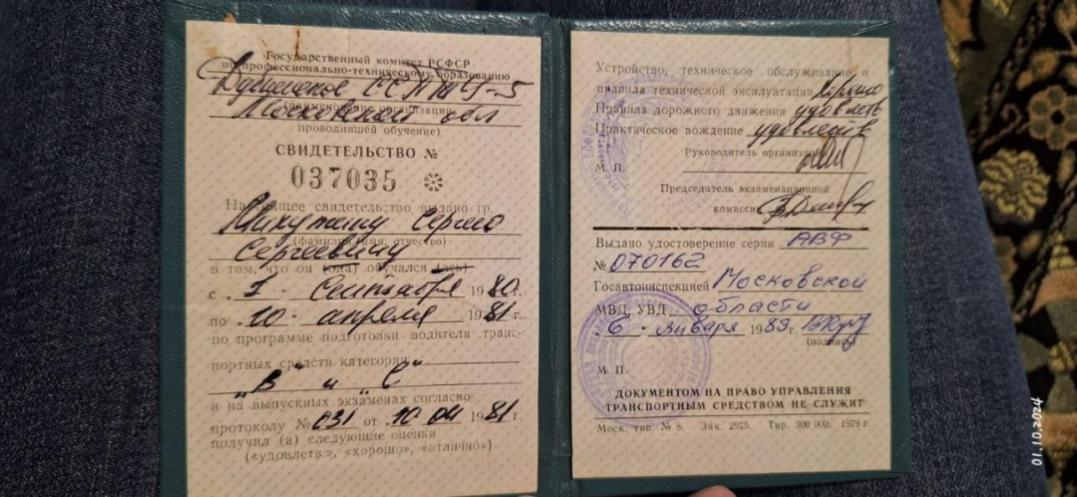 Государственный комитет РСФСР
по профессионально-техническому образованию
ССПТУ-5
Московской обл
(наименование организации,
проводившей обучение)
СВИДЕТЕЛЬСТВО №
037035
Настоящее свидетельство выдано гр.
Микутину Сергею
(фамилия, имя, отчество)
Сергеевичу
в том, что он (она) обучался (ась)
с 1 Сентября 1980 г.
по 10 апреля 1981 г.
по программе подготовки водителя транс-
портных средств категории
„В" и „С"
и на выпускных экзаменах согласно
протоколу № 031 от 10 04 1981
получил (а) следующие оценки
(«удовлетв.», «хорошо», «отлично»)
Устройство, техническое обслуживание и
правила технической эксплуатации хорошо
Правила дорожного движения удовлетв
Практическое вождение удовлетв
Руководитель организации
М. П.
Председатель экзаменационной
комиссии
Выдано удостоверение серии АВФ
№ 070162
Госавтоинспекцией Московской
МВД, УВД области
6 января 1989 г.
(подпись)
М. П.
ДОКУМЕНТОМ НА ПРАВО УПРАВЛЕНИЯ
ТРАНСПОРТНЫМ СРЕДСТВОМ НЕ СЛУЖИТ
Моск. тип. № 8. Зак. 2925. Тир. 300 000. 1979 г
01.10.2024